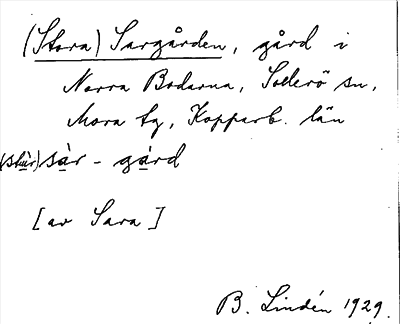 (Stora) Sargården, gård i
Norra Bodarna, Sollerö sn,
Mora tg, Kopparb. län
(stùr) sàr - gård
[av Sara]
B. Lindén 1929.